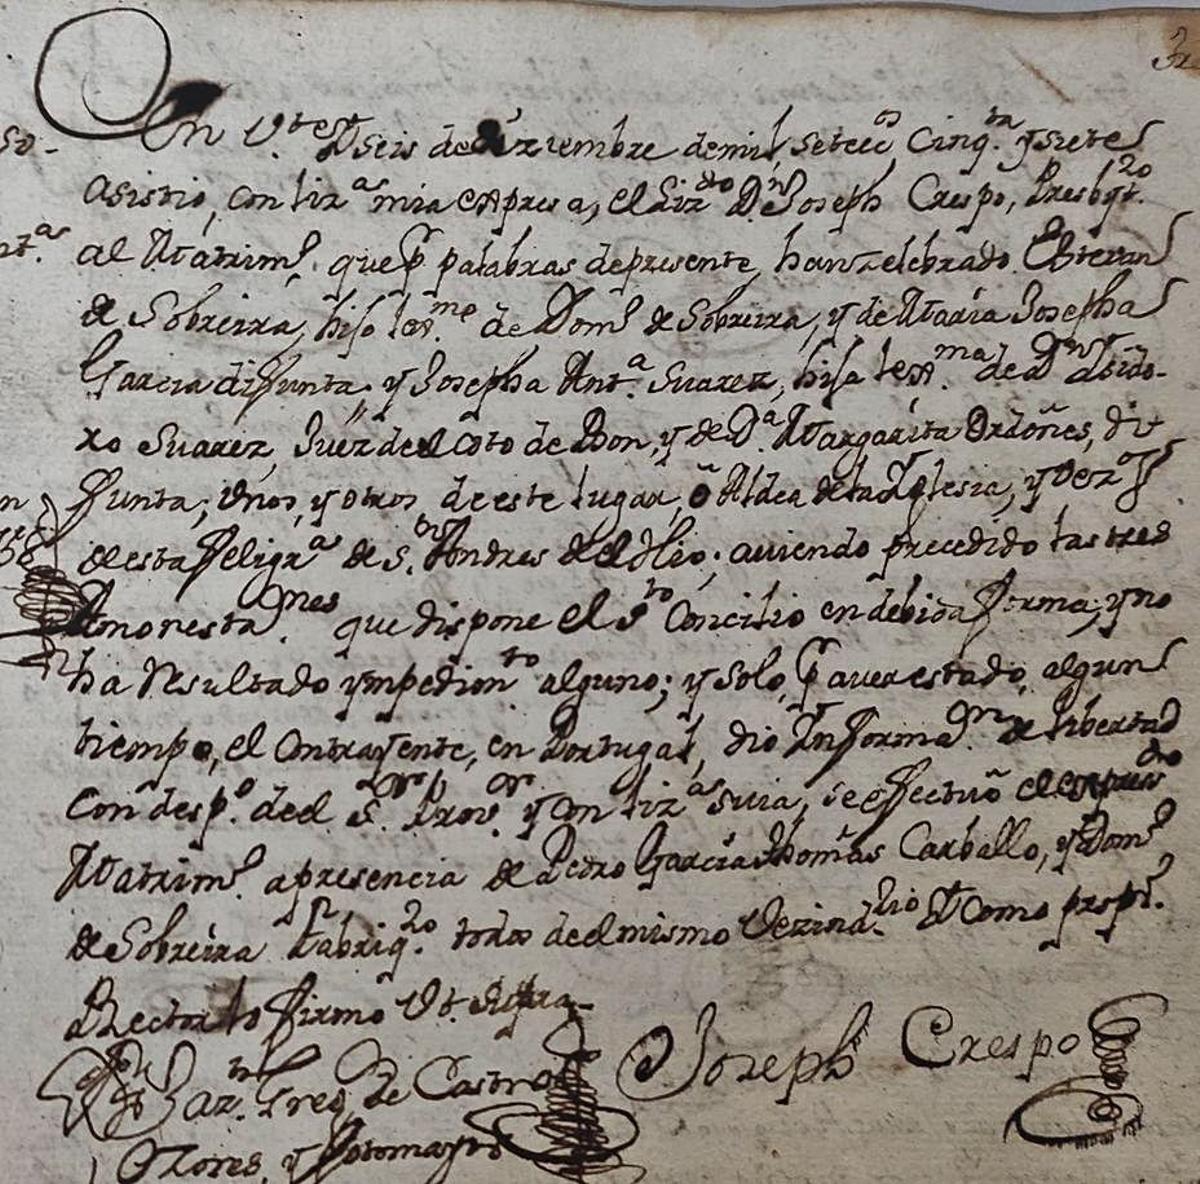 En Vte y Seis de Diziembre de mil, setecos Cinqta y siete
asistio, con lizа mia expresa, el Lizdo Dn Joseph Crespo, Presbyto
al Matrimo que pr palabras de presente, han zelebrado Estevan
de Sobreira, hijo legme de Domo de Sobreira, y de Maria Josepha
Garcia difunta, y Josepha Anta Suarez, hija legma de Dn Isido-
ro Suarez, Juez de el coto de Bon, y de Da Margarita Ordoñes, di
funta; Unos, y otros de este lugar, ò Aldea de la Iglesia, y Vezos
de esta feligra de Sn Andres de el Hio; aviendo precedido las tres
Amonestanes que dispone el Sto Concilio en debida forma, y no
ha Resultado ympedimto alguno; y solo, pr aver estado, algun
tiempo, el Contrayente, en Portugal, dio Informan de libertad
Con despo de el Sr Provor y con liza suia, se efectuò el expresdo
Matrimo a presencia de Pedro Garcia Thomàs Carballo, y Domo
de Sobreira Fabriqo todos de el mismo Vezindrio Y Como propo
Rector lo firmo Ut Supra-
Balr Freg de Castro Joseph Crespo
Ozores, y Sotomayor